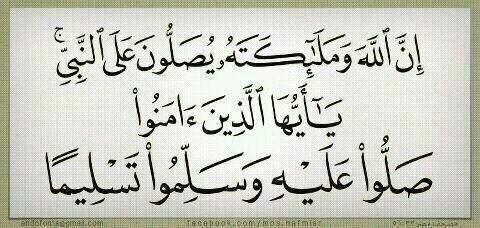 إِنَّ ٱللَّهَ وَمَلَـٰٓئِكَتَهُۥ يُصَلُّونَ عَلَى ٱلنَّبِىِّ ۚ
يَـٰٓأَيُّهَا ٱلَّذِينَ ءَامَنُوا۟
صَلُّوا۟ عَلَيْهِ وَسَلِّمُوا۟ تَسْلِيمًا
facebook.com/mos.hafmisr